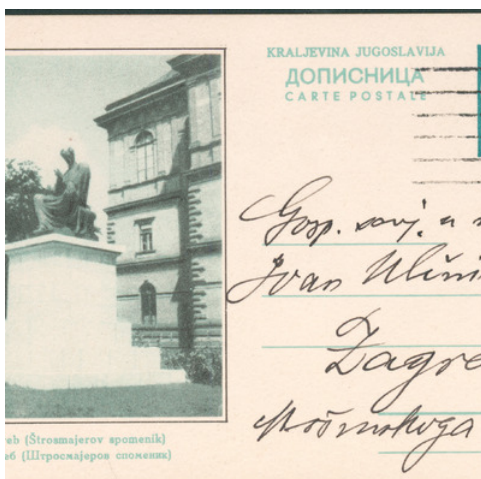 KRALJEVINA JUGOSLAVIJA
ДОПИСНИЦА
CARTE POSTALE
Gosp. savj. u
Ivan
Zagre
eb (Štrosmajerov spomenik)
еб (Штросмајеров споменик)